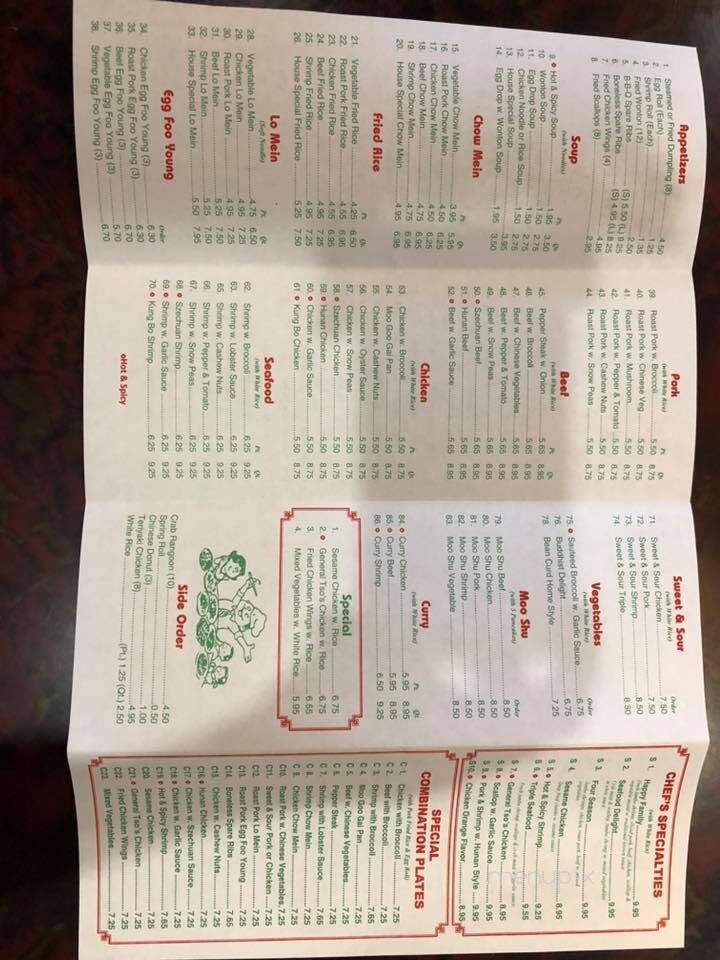 Appetizers
1. Steamed or Fried Dumpling (8) 4.50
2. Egg Roll (Each) 1.25
3. Shrimp Roll (Each) 1.35
4. Fried Wonton (12)
5. B-B-Q Spare Ribs (S) 5.50 (L) 9.25
6. Boneless Spare Ribs (S) 4.95 (L) 8.25
7. Fried Chicken Wings (4)
8. Fried Scallops (8) 2.95
Soup
(with Noodles)
Pt. Qt.
9. Hot & Spicy Soup 1.95 3.50
10. Wonton Soup 1.50 2.75
11. Egg Drop Soup 1.50 2.75
12. Chicken Noodle or Rice Soup 1.50 2.75
13. House Special Soup 3.95
14. Egg Drop w. Wonton Soup 1.95 3.50
Chow Mein
Pt. Qt.
15. Vegetable Chow Mein 3.95 5.95
16. Roast Pork Chow Mein 4.50 6.25
17. Chicken Chow Mein 4.50 6.25
18. Beef Chow Mein 4.75 6.95
19. Shrimp Chow Mein 4.75 6.95
20. House Special Chow Mein 4.95 6.95
Fried Rice
Pt. Qt.
21. Vegetable Fried Rice 4.25 6.50
22. Roast Pork Fried Rice 4.55 6.95
23. Chicken Fried Rice 4.55 6.95
24. Beef Fried Rice 4.95 7.25
25. Shrimp Fried Rice 4.95 7.25
26. House Special Fried Rice 5.25 7.50
Lo Mein
(Soft Noodles)
Pt. Qt.
28. Vegetable Lo Mein 4.75 6.50
29. Chicken Lo Mein 4.95 7.25
30. Roast Pork Lo Mein 4.95 7.25
31. Beef Lo Mein 5.25 7.50
32. Shrimp Lo Mein 5.25 7.50
33. House Special Lo Mein 5.50 7.95
Egg Foo Young
Order
34. Chicken Egg Foo Young (3) 6.30
35. Roast Pork Egg Foo Young (3) 6.30
36. Beef Egg Foo Young (3) 5.70
37. Vegetable Egg Foo Young (3) 5.70
38. Shrimp Egg Foo Young (3) 6.70
Pork
(with White Rice)
Pt. Qt.
39. Roast Pork w. Broccoli 5.50 8.75
40. Roast Pork w. Chinese Veg. 5.50 8.75
41. Roast Pork w. Mushroom 5.50 8.75
42. Roast Pork w. Pepper & Tomato 5.50 8.75
43. Roast Pork w. Cashew Nuts 5.50 8.75
44. Roast Pork w. Snow Peas 5.50 8.75
Beef
(with White Rice)
Pt. Qt.
45. Pepper Steak w. Onion 5.65 8.95
46. Beef w. Broccoli 5.65 8.95
47. Beef w. Chinese Vegetables 5.65 8.95
48. Beef w. Pepper & Tomato 5.65 8.95
49. Beef w. Snow Peas 5.65 8.95
50. Szechuan Beef 5.65 8.95
51. Hunan Beef 5.65 8.95
52. Beef w. Garlic Sauce 5.65 8.95
Chicken
(with White Rice)
Pt. Qt.
53. Chicken w. Broccoli 5.50 8.75
54. Moo Goo Gai Pan 5.50 8.75
55. Chicken w. Cashew Nuts 5.50 8.75
56. Chicken w. Oyster Sauce 5.50 8.75
57. Chicken w. Snow Peas 5.50 8.75
58. Szechuan Chicken 5.50 8.75
59. Hunan Chicken 5.50 8.75
60. Chicken w. Garlic Sauce 5.50 8.75
61. Kung Bo Chicken 5.50 8.75
Seafood
(with White Rice)
Pt. Qt.
62. Shrimp w. Broccoli 6.25 9.25
63. Shrimp w. Lobster Sauce 6.25 9.25
65. Shrimp w. Cashew Nuts 6.25 9.25
66. Shrimp w. Pepper & Tomato 6.25 9.25
67. Shrimp w. Snow Peas 6.25 9.25
68. Szechuan Shrimp 6.25 9.25
69. Shrimp w. Garlic Sauce 6.25 9.25
70. Kung Bo Shrimp 6.25 9.25
Hot & Spicy
Sweet & Sour
(with White Rice)
Order
71. Sweet & Sour Chicken 7.50
72. Sweet & Sour Pork 7.50
73. Sweet & Sour Shrimp 8.50
74. Sweet & Sour Triple 8.50
Vegetables
(with White Rice)
Order
75. Sauteed Broccoli w. Garlic Sauce 6.75
76. Buddhist Delight 6.75
78. Bean Curd Home Style 7.25
Moo Shu
(with 5 Pancakes)
Order
79. Moo Shu Beef 8.50
80. Moo Shu Chicken 8.50
81. Moo Shu Pork 8.50
82. Moo Shu Shrimp 8.50
83. Moo Shu Vegetable 8.50
Curry
(with White Rice)
Pt. Qt.
84. Curry Chicken 5.95 8.95
85. Curry Beef 5.95 8.95
86. Curry Shrimp 6.50 9.25
Special
1. Sesame Chicken w. Rice 6.75
2. General Tso's Chicken w. Rice 6.75
3. Fried Chicken Wings w. Rice 6.55
4. Mixed Vegetables w. White Rice 5.95
Side Order
Crab Rangoon (10) 4.50
Spring Roll 1.00
Chinese Donut (3)
Teriyaki Chicken (8) 4.95
White Rice (Pt.) 1.25 (Qt.) 2.50
CHEF'S SPECIALTIES
(with White Rice)
S 1. Happy Family 9.95
S 2. Seafood Delight 9.95
S 3. Four Season 9.95
S 4. Sesame Chicken 8.95
S 5. Hot & Spicy Shrimp 9.25
S 6. Triple Seafood 9.55
S 7. General Tso's Chicken 8.95
S 8. Scallop w. Garlic Sauce 9.95
S 9. Pork & Shrimp w. Hunan Style 9.95
S10. Chicken Orange Flavor 8.95
SPECIAL
COMBINATION PLATES
(with Pork Fried Rice & Egg Roll)
C 1. Chicken with Broccoli 7.25
C 2. Beef with Broccoli 7.25
C 3. Shrimp with Broccoli 7.25
C 4. Moo Goo Gai Pan 7.25
C 5. Beef w. Chinese Vegetables 7.25
C 6. Pepper Steak 7.25
C 7. Shrimp with Lobster Sauce 7.65
C 8. Shrimp Chow Mein 7.25
C 9. Chicken Chow Mein 7.25
C10. Roast Pork w. Chinese Vegetables 7.25
C11. Sweet & Sour Pork or Chicken 7.25
C12. Roast Pork Lo Mein 7.25
C13. Roast Pork Egg Foo Young 7.25
C14. Boneless Spare Ribs 7.65
C15. Chicken w. Cashew Nuts 7.25
C16. Hunan Chicken 7.25
C17. Chicken w. Szechuan Sauce 7.25
C18. Chicken w. Garlic Sauce 7.25
C19. Hot & Spicy Shrimp 7.65
C20. Sesame Chicken 7.25
C21. General Tso's Chicken 7.25
C22. Fried Chicken Wings 7.25
C23. Mixed Vegetables 7.25
menupix